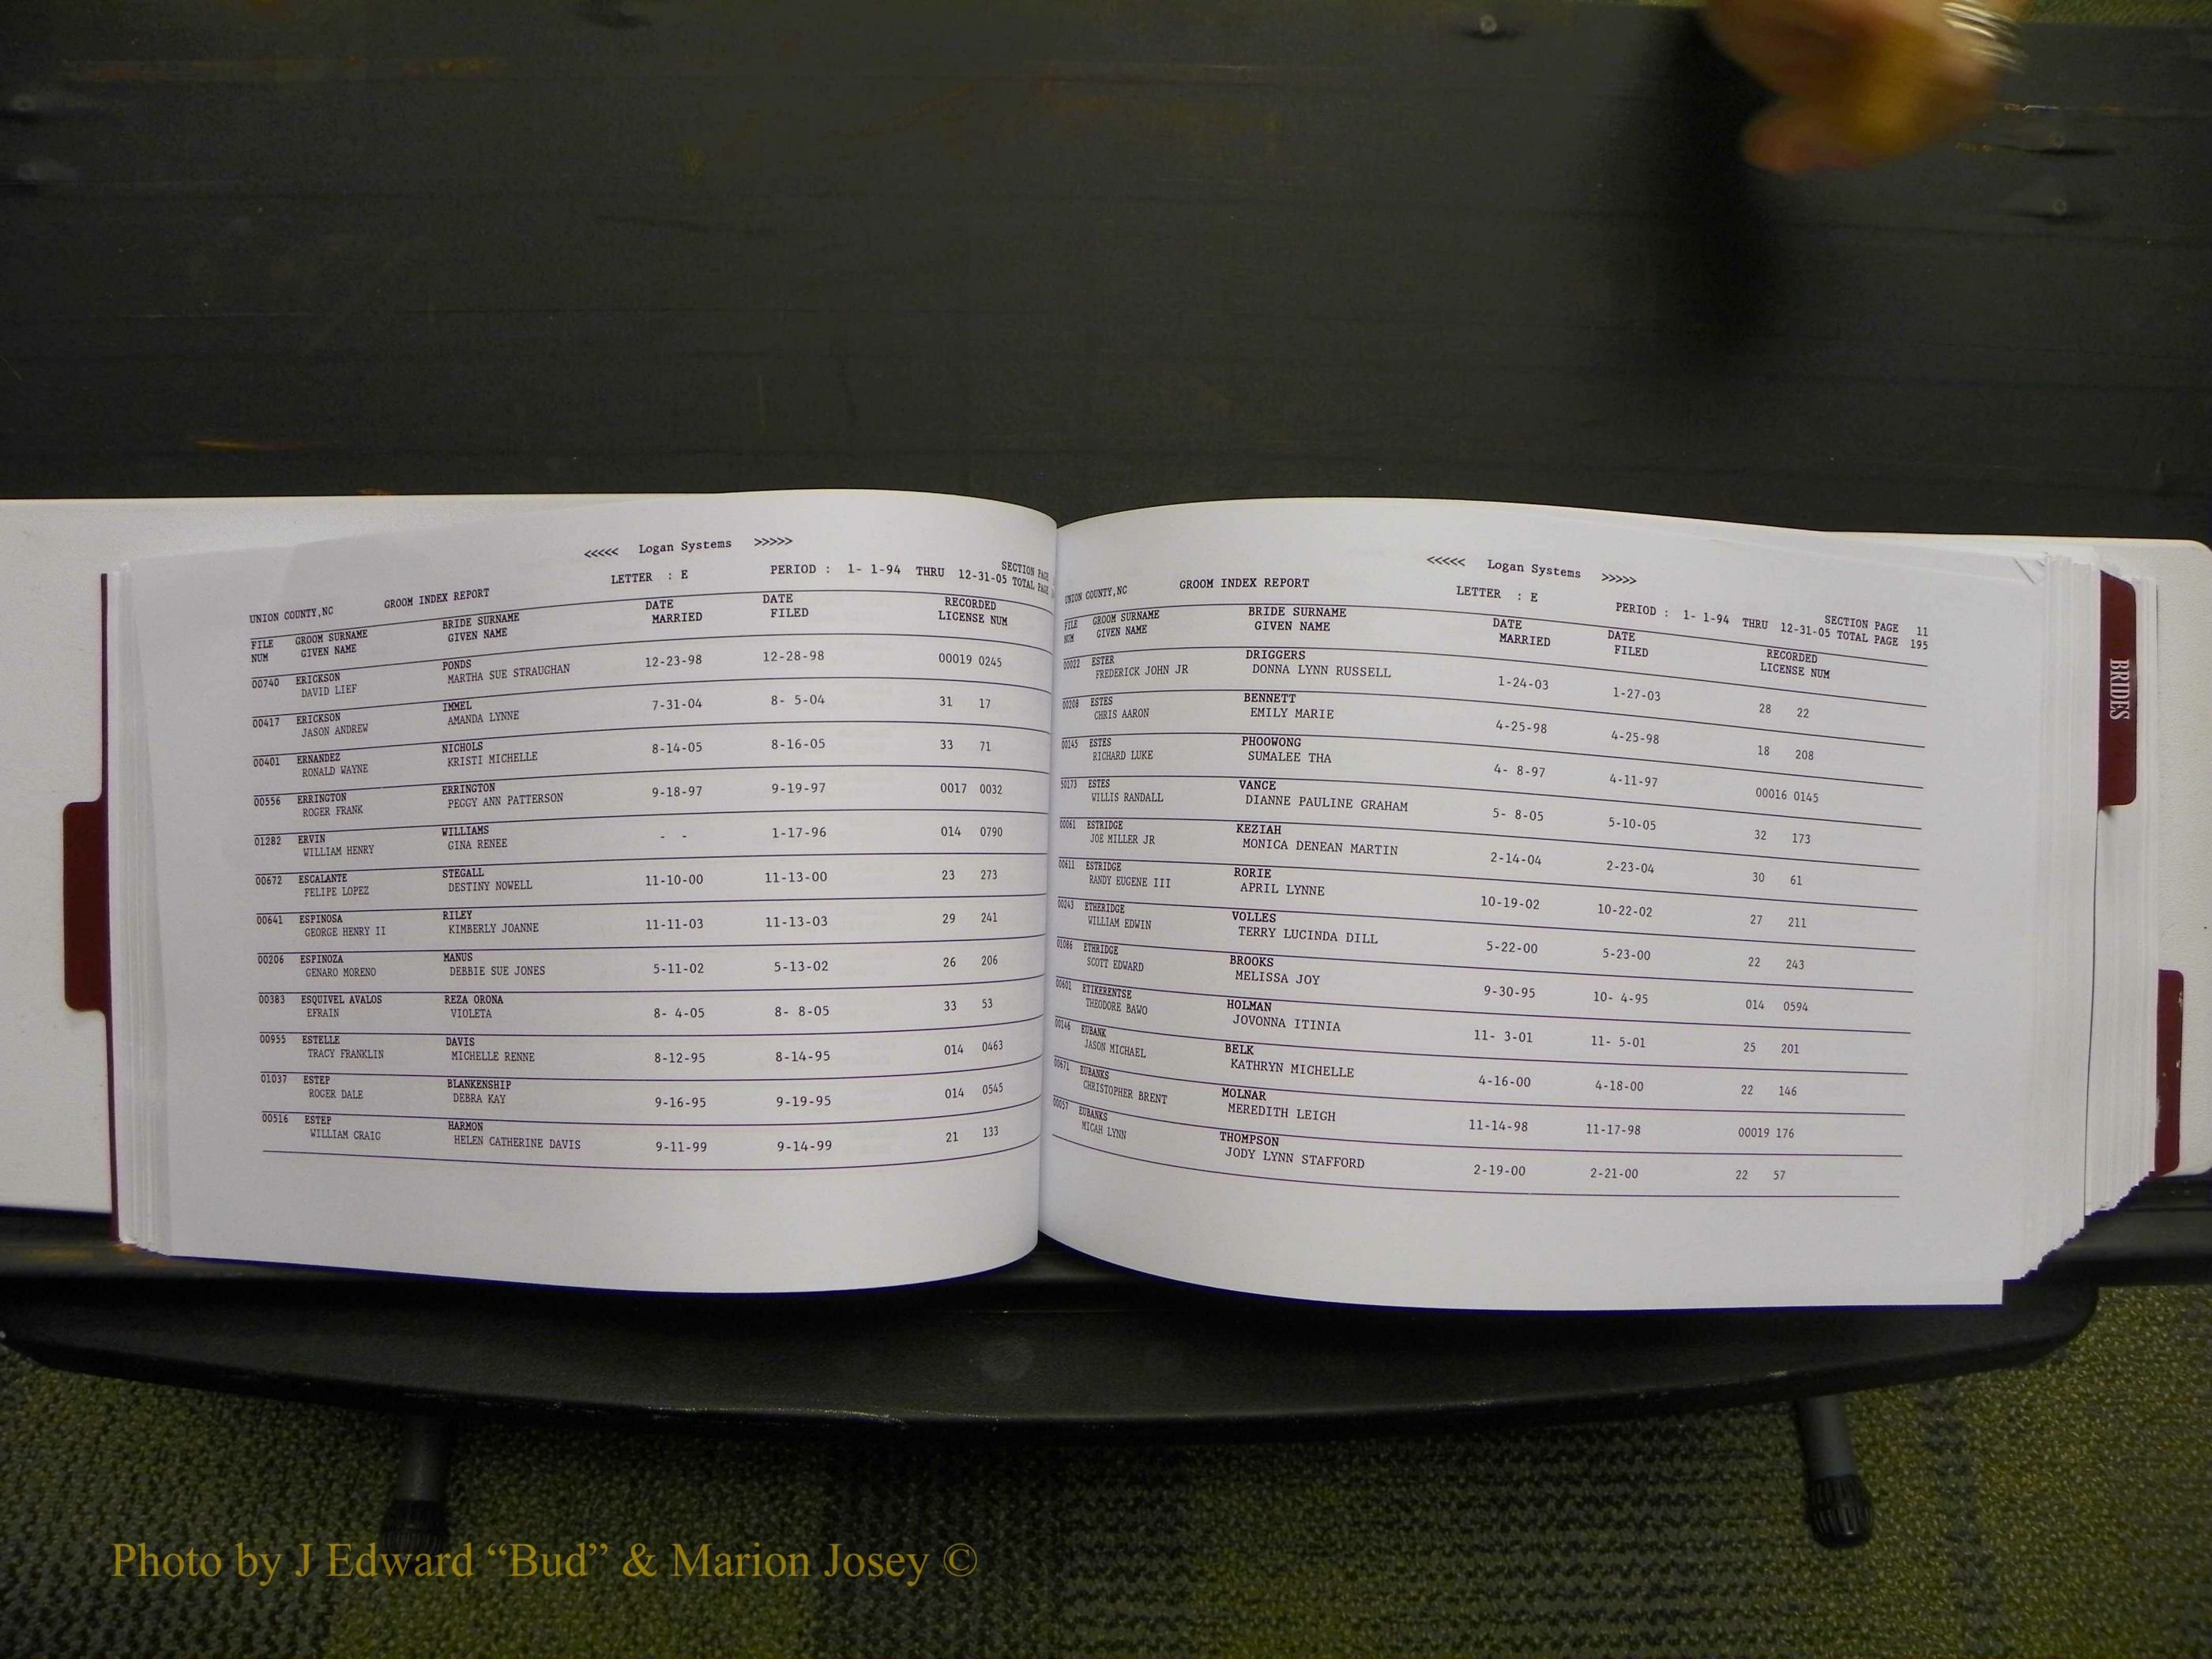 <<<<< Logan Systems >>>>>
UNION COUNTY,NC GROOM INDEX REPORT LETTER : E PERIOD : 1- 1-94 THRU 12-31-05 SECTION PAGE
TOTAL PAGE
FILE GROOM SURNAME BRIDE SURNAME DATE DATE RECORDED
NUM GIVEN NAME GIVEN NAME MARRIED FILED LICENSE NUM
00740 ERICKSON PONDS 12-23-98 12-28-98 00019 0245
DAVID LIEF MARTHA SUE STRAUGHAN
00417 ERICKSON IMMEL 7-31-04 8- 5-04 31 17
JASON ANDREW AMANDA LYNNE
00401 ERNANDEZ NICHOLS 8-14-05 8-16-05 33 71
RONALD WAYNE KRISTI MICHELLE
00556 ERRINGTON ERRINGTON 9-18-97 9-19-97 0017 0032
ROGER FRANK PEGGY ANN PATTERSON
01282 ERVIN WILLIAMS - - 1-17-96 014 0790
WILLIAM HENRY GINA RENEE
00672 ESCALANTE STEGALL 11-10-00 11-13-00 23 273
FELIPE LOPEZ DESTINY NOWELL
00641 ESPINOSA RILEY 11-11-03 11-13-03 29 241
GEORGE HENRY II KIMBERLY JOANNE
00206 ESPINOZA MANUS 5-11-02 5-13-02 26 206
GENARO MORENO DEBBIE SUE JONES
00383 ESQUIVEL AVALOS REZA ORONA 8- 4-05 8- 8-05 33 53
EFRAIN VIOLETA
00955 ESTELLE DAVIS 8-12-95 8-14-95 014 0463
TRACY FRANKLIN MICHELLE RENNE
01037 ESTEP BLANKENSHIP 9-16-95 9-19-95 014 0545
ROGER DALE DEBRA KAY
00516 ESTEP HARMON 9-11-99 9-14-99 21 133
WILLIAM CRAIG HELEN CATHERINE DAVIS
<<<<< Logan Systems >>>>>
UNION COUNTY,NC GROOM INDEX REPORT LETTER : E PERIOD : 1- 1-94 THRU 12-31-05 SECTION PAGE 11
TOTAL PAGE 195
FILE GROOM SURNAME BRIDE SURNAME DATE DATE RECORDED
NUM GIVEN NAME GIVEN NAME MARRIED FILED LICENSE NUM
00022 ESTER DRIGGERS 1-24-03 1-27-03 28 22
FREDERICK JOHN JR DONNA LYNN RUSSELL
00208 ESTES BENNETT 4-25-98 4-25-98 18 208
CHRIS AARON EMILY MARIE
00145 ESTES PHOOWONG 4- 8-97 4-11-97 00016 0145
RICHARD LUKE SUMALEE THA
50173 ESTES VANCE 5- 8-05 5-10-05 32 173
WILLIS RANDALL DIANNE PAULINE GRAHAM
00061 ESTRIDGE KEZIAH 2-14-04 2-23-04 30 61
JOE MILLER JR MONICA DENEAN MARTIN
00611 ESTRIDGE RORIE 10-19-02 10-22-02 27 211
RANDY EUGENE III APRIL LYNNE
00243 ETHERIDGE VOLLES 5-22-00 5-23-00 22 243
WILLIAM EDWIN TERRY LUCINDA DILL
01086 ETHRIDGE BROOKS 9-30-95 10- 4-95 014 0594
SCOTT EDWARD MELISSA JOY
00601 ETIKERENTSE HOLMAN 11- 3-01 11- 5-01 25 201
THEODORE BAWO JOVONNA ITINIA
00146 EUBANK BELK 4-16-00 4-18-00 22 146
JASON MICHAEL KATHRYN MICHELLE
00671 EUBANKS MOLNAR 11-14-98 11-17-98 00019 176
CHRISTOPHER BRENT MEREDITH LEIGH
00057 EUBANKS THOMPSON 2-19-00 2-21-00 22 57
MICAH LYNN JODY LYNN STAFFORD
BRIDES
Photo by J Edward “Bud” & Marion Josey ©